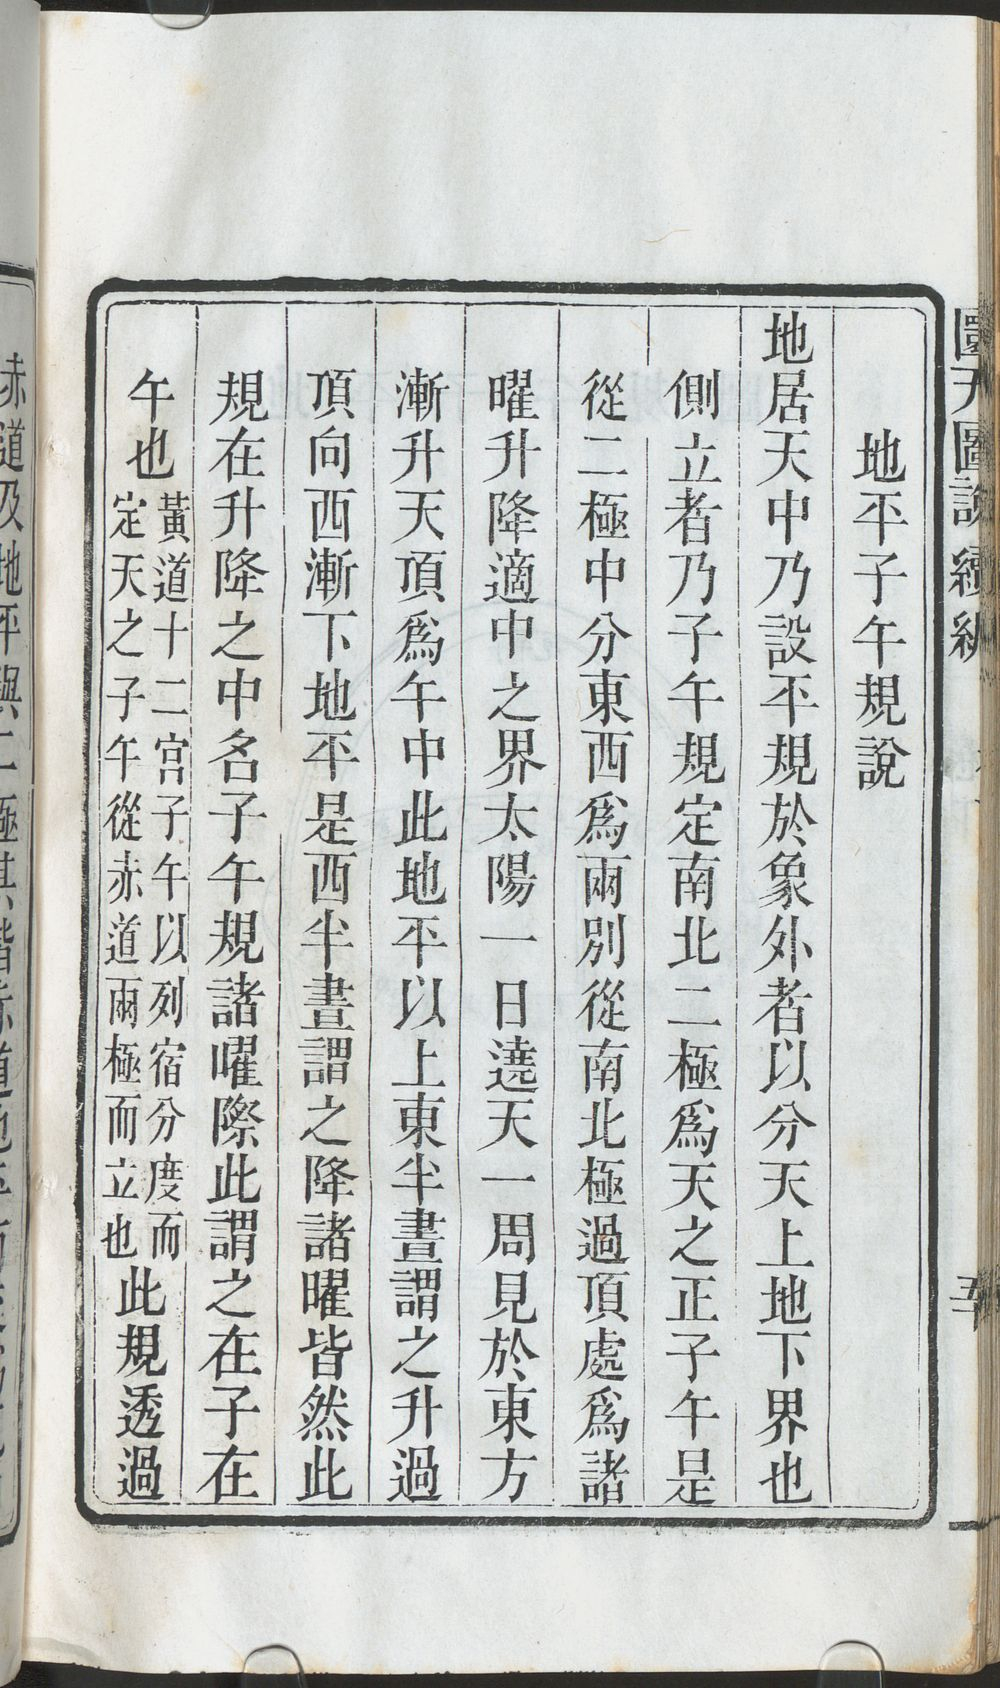 圜天圖說續編
地平子午規說
地居天中乃設平規於象外者以分天上地下界也
側立者乃子午規定南北二極爲天之正子午是
從二極中分東西爲兩別從南北極過頂處爲諸
曜升降適中之界太陽一日遶天一周見於東方
漸升天頂爲午中此地平以上東半晝謂之升過
頂向西漸下地平是西半晝謂之降諸曜皆然此
規在升降之中名子午規諸曜際此謂之在子在
午也黃道十二宮子午以列宿分度而
定天之子午從赤道兩極而立也此規透過
赤道及地平與二極其